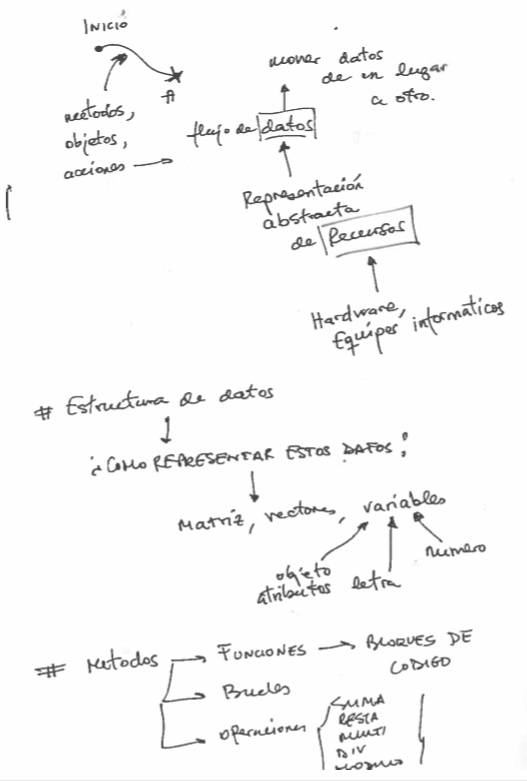 INICIO
A
métodos,
objetos,
acciones
flujo de datos
mover datos
de un lugar
a otro.
Representación
abstracta
de Recursos
Hardware,
Equipos informáticos
# Estructura de datos
¿COMO REPRESENTAR ESTOS DATOS?
Matriz, vectores, variables
objeto
atributos
letra
numero
# Metodos
FUNCIONES
BLOQUES DE
CODIGO
Bucles
operaciones
SUMA
RESTA
MULTI
DIV